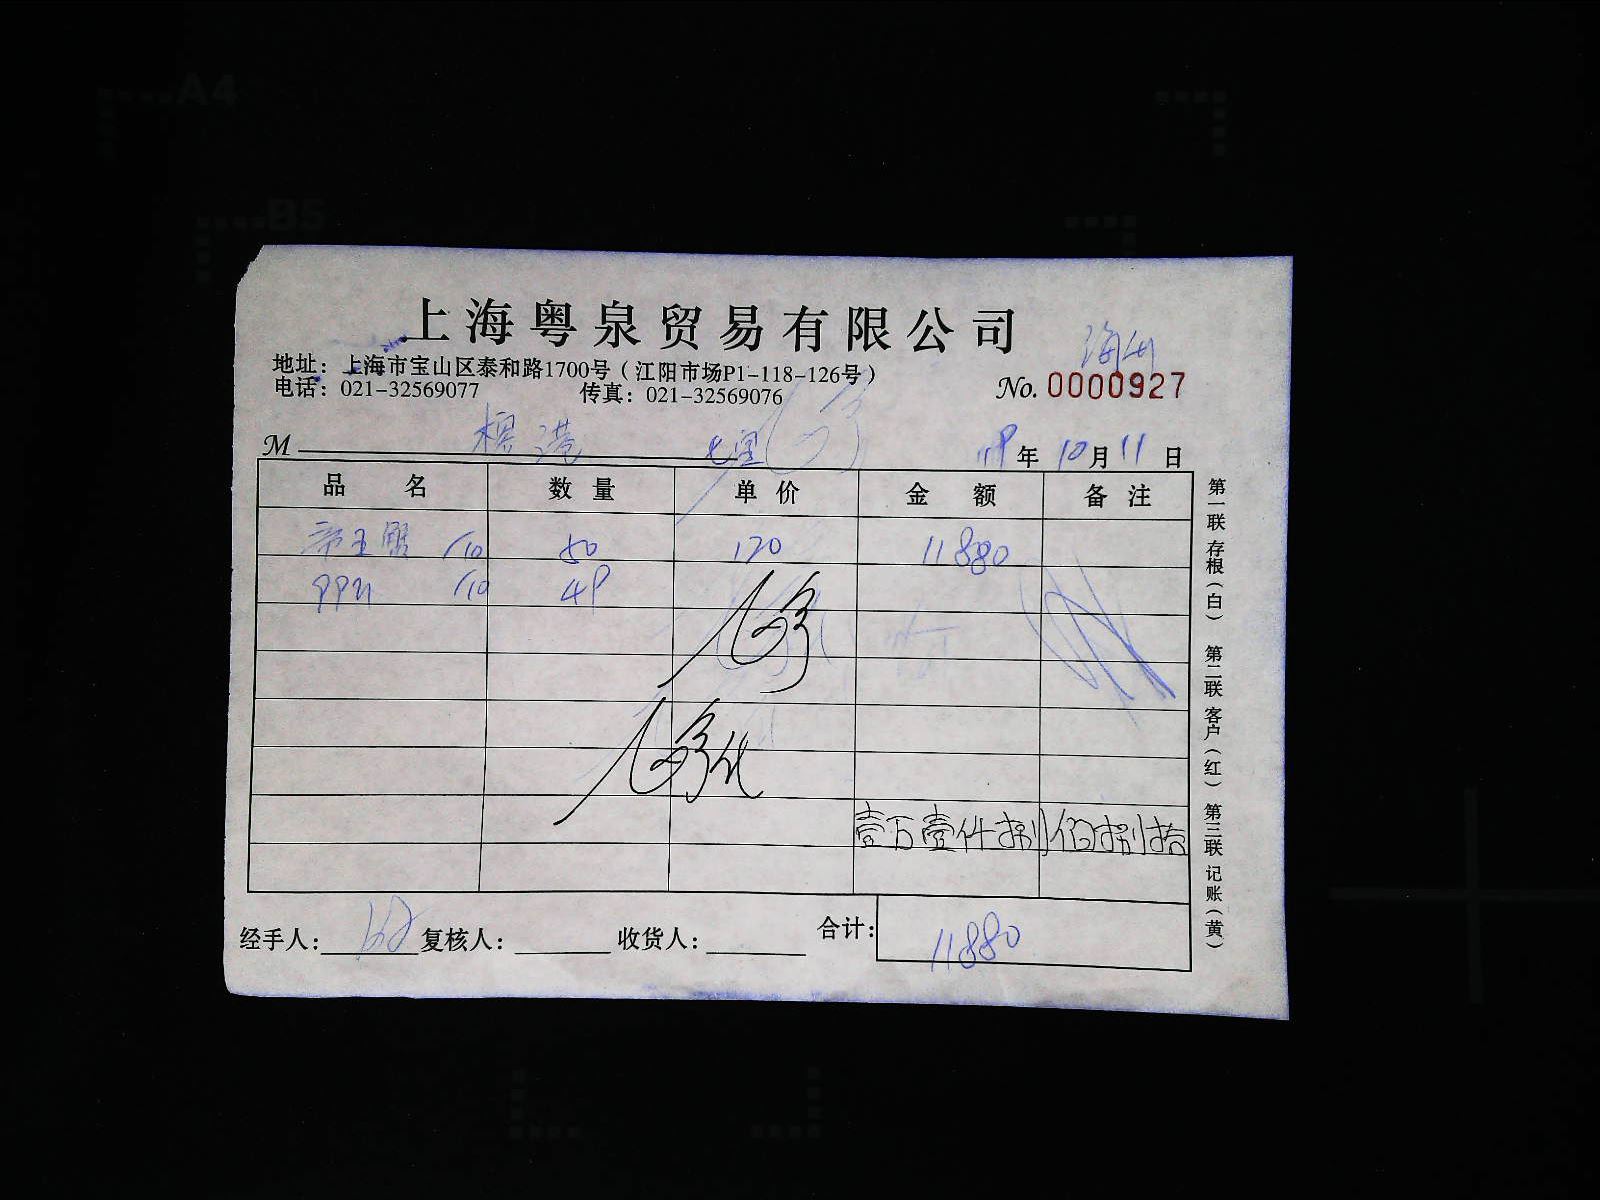 A4
B5
上海粤泉贸易有限公司
地址：上海市宝山区泰和路1700号（江阳市场P1-118-126号）
电话：021-32569077 传真：021-32569076
No. 0000927
M 年 10月11日
品名 数量 单价 金额 备注
帝王蟹 /10 50 120 11880
/10 49
壹万壹仟捌佰捌拾
经手人： 复核人： 收货人： 合计： 11880
第一联 存根（白） 第二联 客户（红） 第三联 记账（黄）